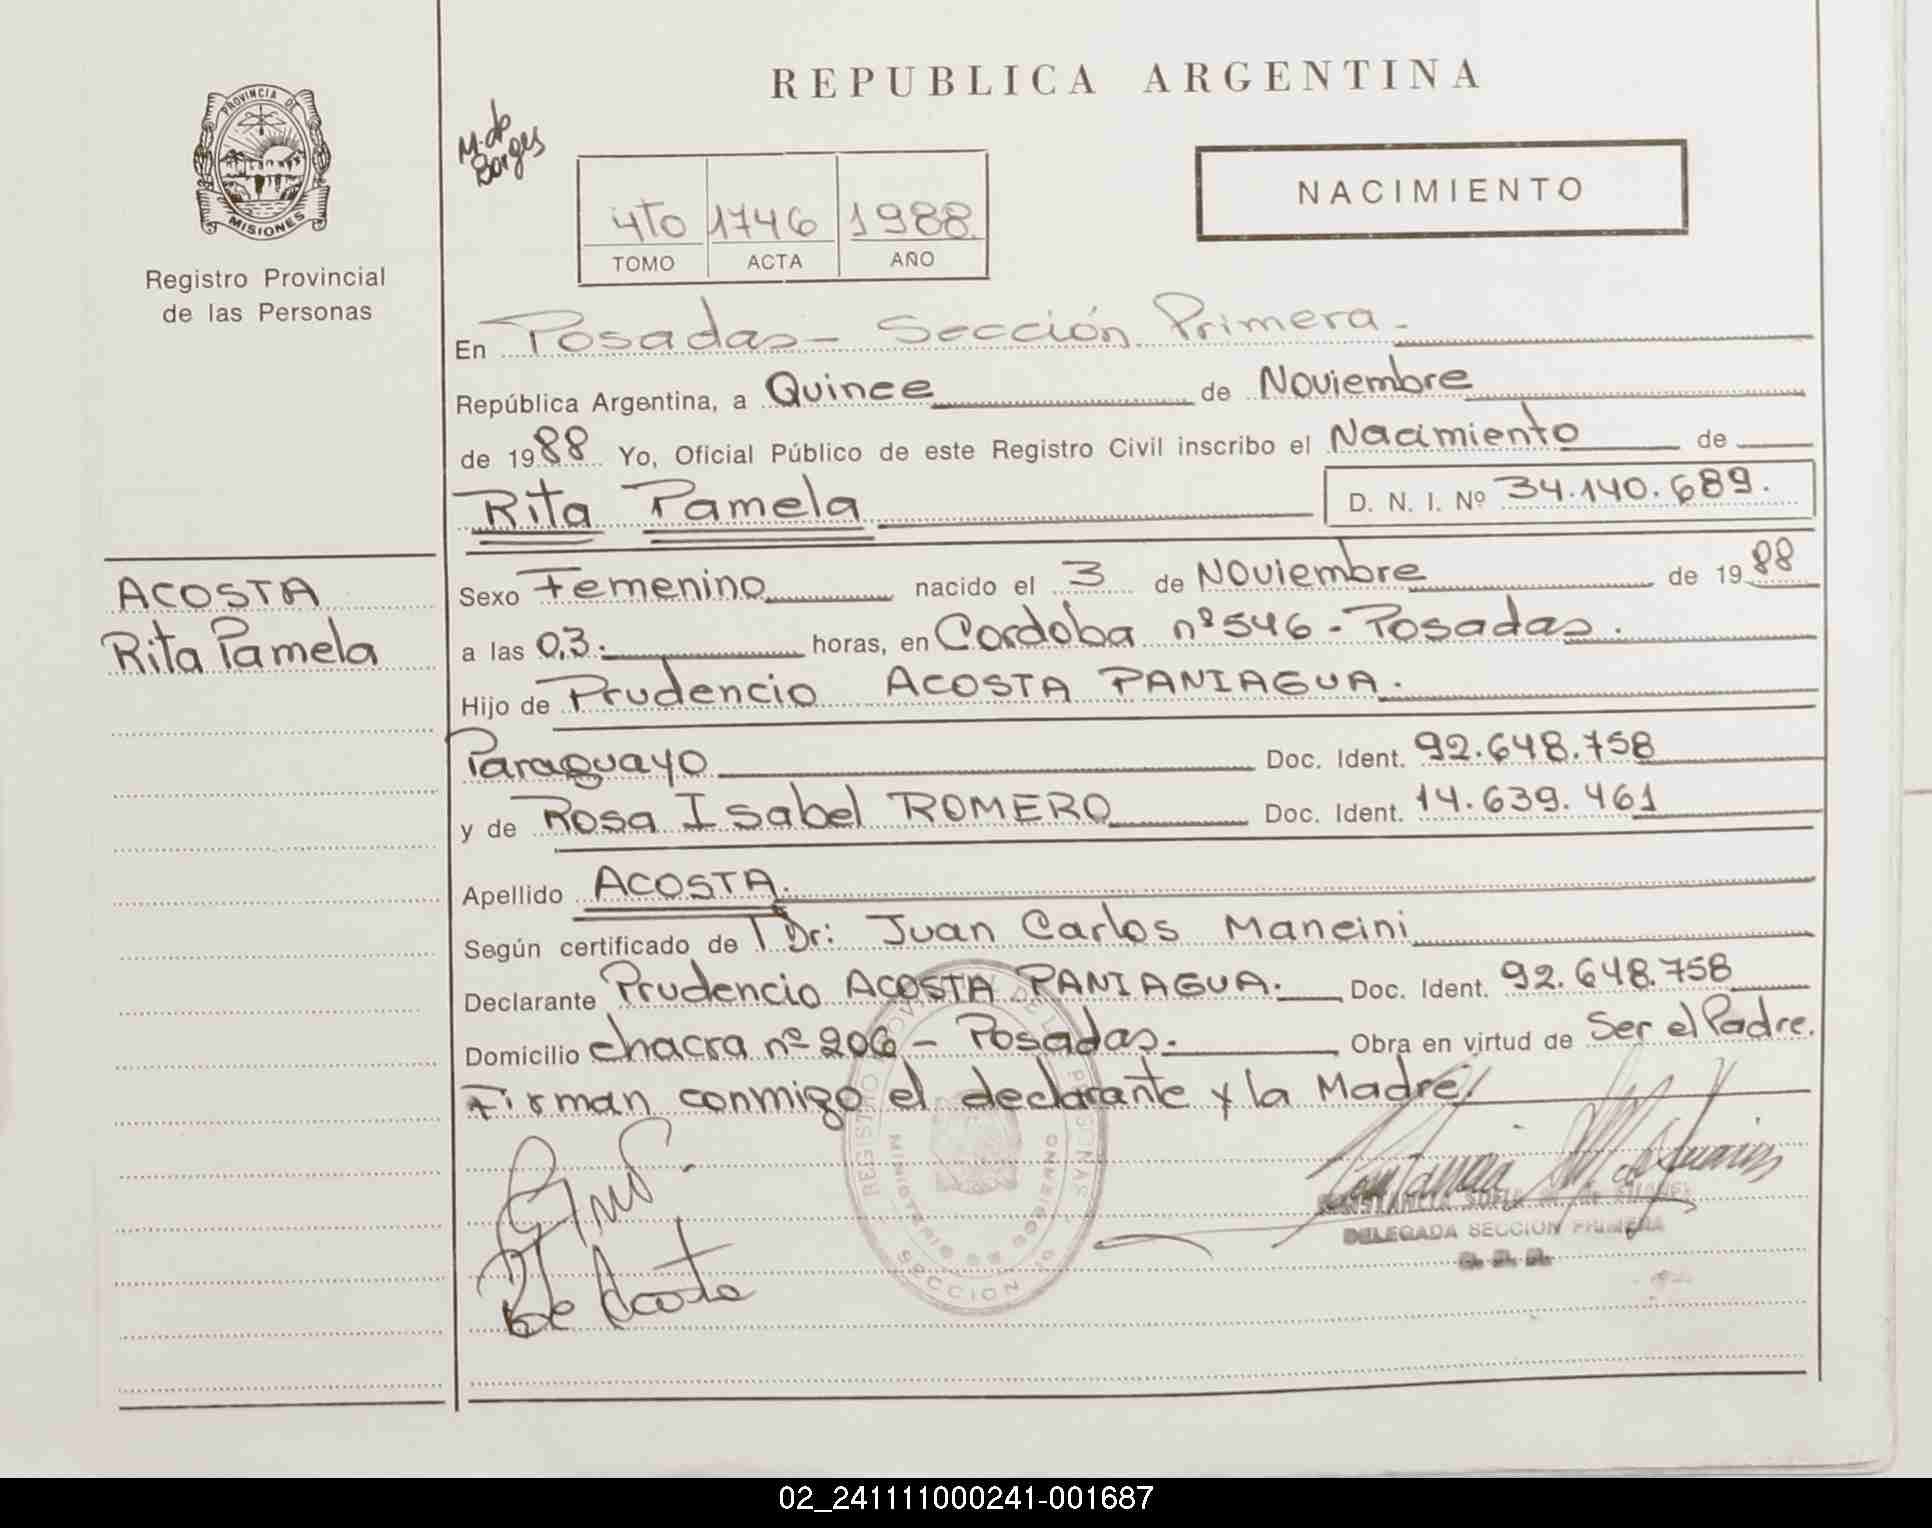 PROVINCIA DE
MISIONES
Registro Provincial
de las Personas
ACOSTA
Rita Pamela
REPUBLICA ARGENTINA
M. de
Borges
NACIMIENTO
4TO 1746 1988.
TOMO ACTA AÑO
En Posadas - Sección Primera.-
República Argentina, a Quince de Noviembre
de 1988 Yo, Oficial Público de este Registro Civil inscribo el Nacimiento de
Rita Pamela D. N. I. Nº 34.140.689.
Sexo Femenino nacido el 3 de Noviembre de 1988
a las 03. horas, en Cordoba nº 546 - Posadas.
Hijo de Prudencio ACOSTA PANIAGUA.
Paraguayo Doc. Ident. 92.648.758
y de Rosa Isabel ROMERO Doc. Ident. 14.639.461
Apellido ACOSTA.
Según certificado de Dr: Juan Carlos Mancini
Declarante Prudencio ACOSTA PANIAGUA. Doc. Ident. 92.648.758
Domicilio chacra nº 206 - Posadas. Obra en virtud de Ser el Padre.
Firman conmigo el declarante y la Madre.
REGISTRO PROVINCIAL DE LAS PERSONAS
MINISTERIO DE GOBIERNO
SECCION
de Acosta
DELEGADA SECCION PRIMERA
02_241111000241-001687